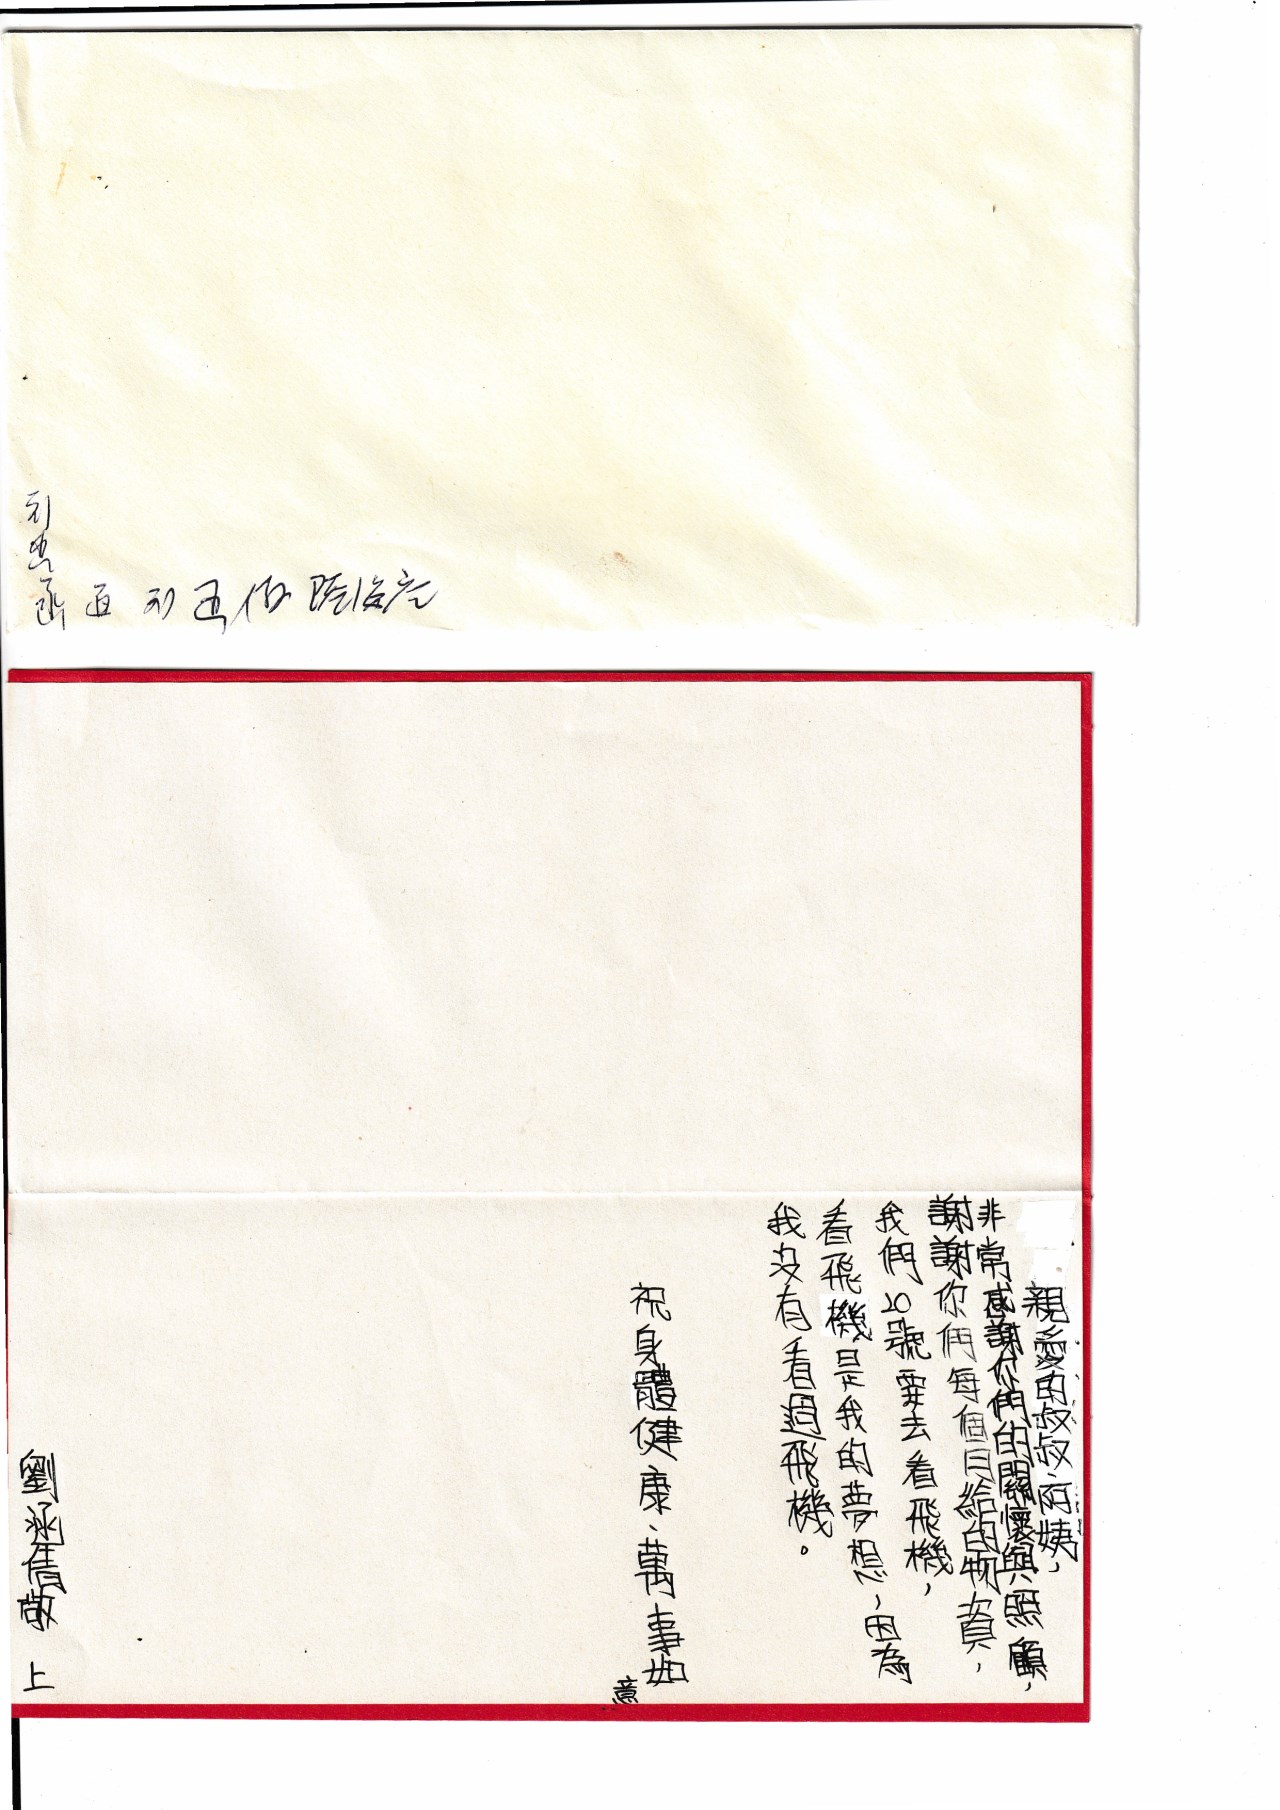 親愛的叔叔、阿姨，
非常感謝你們的關懷與照顧，
謝謝你們每個月給的物資，
我們20號要去看飛機，
看飛機是我的夢想，因為
我沒有看過飛機。
祝身體健康、萬事如
意
劉涵倩敬 上